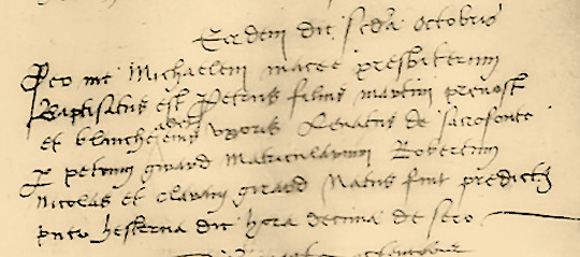 Eisdem die sedā octobris
Per me Michaelem macee presbiterum
Baptisatus est Petrus filius martini prevost
et blanche eius uxoris Levatus de sacrofonte
P petrum girard Matricularium Robertum
Nicolas et claram girard Natus fuit predictꝫ
hesterna die hora decima de sero
octobris